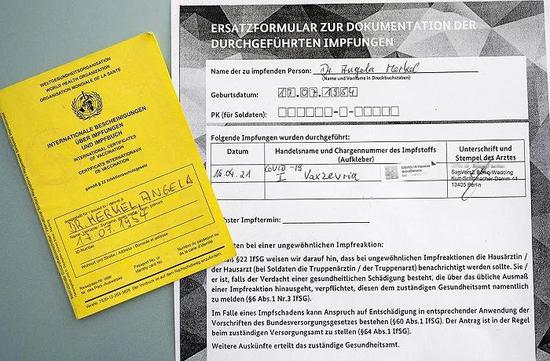 WELTGESUNDHEITSORGANISATION
WORLD HEALTH ORGANIZATION
ORGANISATION MONDIALE DE LA SANTÉ
INTERNATIONALE BESCHEINIGUNGEN
ÜBER IMPFUNGEN
UND IMPFBUCH
INTERNATIONAL CERTIFICATES
OF VACCINATION
CERTIFICATS INTERNATIONAUX
DE VACCINATION
gemäß § 22 Infektionsschutzgesetz
DR MERKEL, ANGELA
17.07.1954
ERSATZFORMULAR ZUR DOKUMENTATION DER
DURCHGEFÜHRTEN IMPFUNGEN
Name der zu impfenden Person: Dr. Angela Merkel
(Name und Vorname in Druckbuchstaben)
Geburtsdatum: 17.07.1954
PK (für Soldaten):
Folgende Impfungen wurden durchgeführt:
Datum
Handelsname und Chargennummer des Impfstoffs
(Aufkleber)
Unterschrift und
Stempel des Arztes
16.04.21
COVID-19
I Vaxzevria
13405 Berlin
hster Impftermin:
ten bei einer ungewöhnlichen Impfreaktion:
§22 IfSG weisen wir darauf hin, dass bei ungewöhnlichen Impfreaktion die Hausärztin /
der Hausarzt (bei Soldaten die Truppenärztin / der Truppenarzt) benachrichtigt werden sollte. Sie /
er ist, falls der Verdacht einer gesundheitlichen Schädigung besteht, die über das übliche Ausmaß
einer Impfreaktion hinausgeht, verpflichtet, diesen dem zuständigen Gesundheitsamt namentlich
zu melden (§6 Abs.1 Nr.3 IfSG).
Im Falle eines Impfschadens kann Anspruch auf Entschädigung in entsprechender Anwendung der
Vorschriften des Bundesversorgungsgesetzes bestehen (§60 Abs.1 IfSG). Der Antrag ist in der Regel
beim zuständigen Versorgungsamt zu stellen (§64 Abs.1 IfSG).
Weitere Auskünfte erteilt das zuständige Gesundheitsamt.